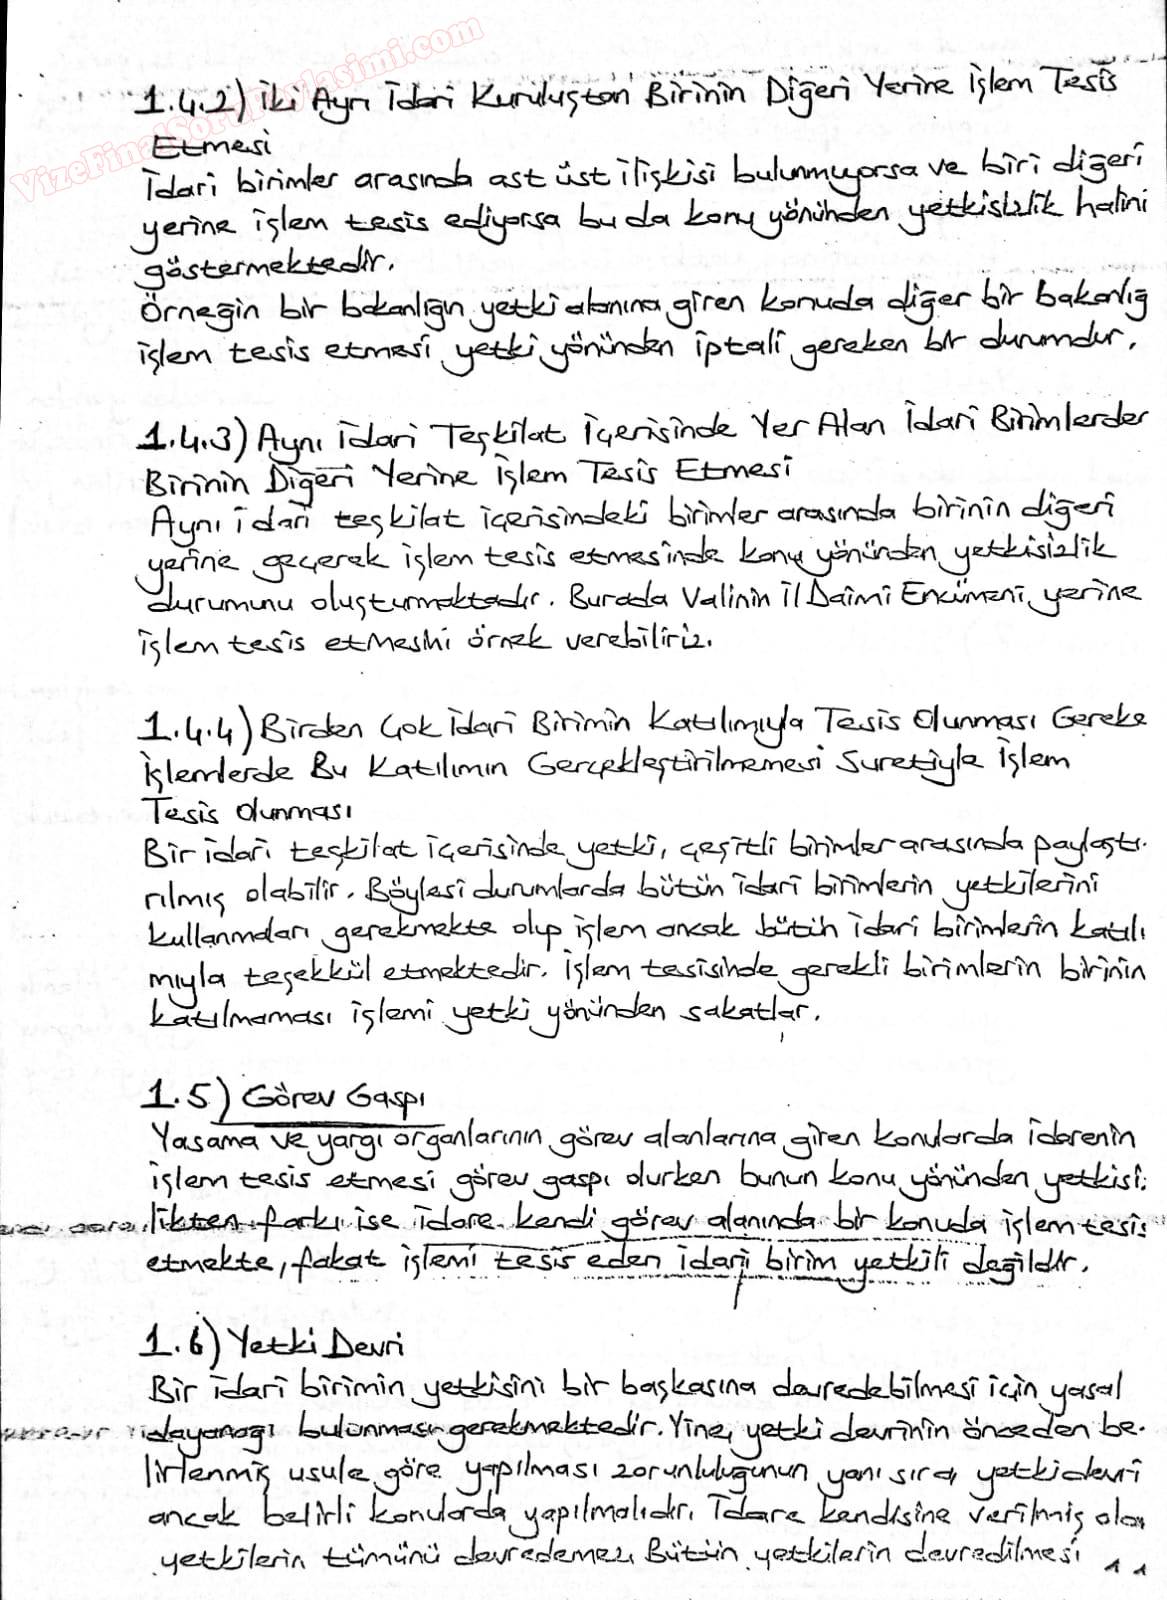 VizeFinalSoruPaylasimi.com
1.4.2) İki Ayrı İdari Kuruluştan Birinin Diğeri Yerine İşlem Tesis
Etmesi
İdari birimler arasında ast üst ilişkisi bulunmuyorsa ve biri diğeri
yerine işlem tesis ediyorsa bu da konu yönünden yetkisizlik halini
göstermektedir.
Örneğin bir bakanlığın yetki alanına giren konuda diğer bir bakanlığ
işlem tesis etmesi yetki yönünden iptali gereken bir durumdur.
1.4.3) Aynı İdari Teşkilat İçerisinde Yer Alan İdari Birimlerder
Birinin Diğeri Yerine İşlem Tesis Etmesi
Aynı idari teşkilat içerisindeki birimler arasında birinin diğeri
yerine geçerek işlem tesis etmesinde konu yönünden yetkisizlik
durumunu oluşturmaktadır. Burada Valinin İl Daimi Encümeni yerine
işlem tesis etmesini örnek verebiliriz.
1.4.4) Birden Çok İdari Birimin Katılımıyla Tesis Olunması Gereke
İşlemlerde Bu Katılımın Gerçekleştirilmemesi Suretiyle İşlem
Tesis Olunması
Bir idari teşkilat içerisinde yetki, çeşitli birimler arasında paylaştı-
rılmış olabilir. Böylesi durumlarda bütün idari birimlerin yetkilerini
kullanmaları gerekmekte olup işlem ancak bütün idari birimlerin katılı
mıyla teşekkül etmektedir. İşlem tesisinde gerekli birimlerin birinin
katılmaması işlemi yetki yönünden sakatlar.
1.5) Görev Gaspı
Yasama ve yargı organlarının görev alanlarına giren konularda idarenin
işlem tesis etmesi görev gaspı olurken bunun konu yönünden yetkisi:
likten farkı ise idare kendi görev alanında bir konuda işlem tesis
etmekte, fakat işlemi tesis eden idari birim yetkili değildir.
1.6) Yetki Devri
Bir idari birimin yetkisini bir başkasına devredebilmesi için yasal
dayanağı bulunması gerekmektedir. Yine, yetki devrinin önceden be-
lirlenmiş usule göre yapılması zorunluluğunun yanı sıra, yetki devri
ancak belirli konularda yapılmalıdır. İdare kendisine verilmiş olan
yetkilerin tümünü devredemez. Bütün yetkilerin devredilmesi